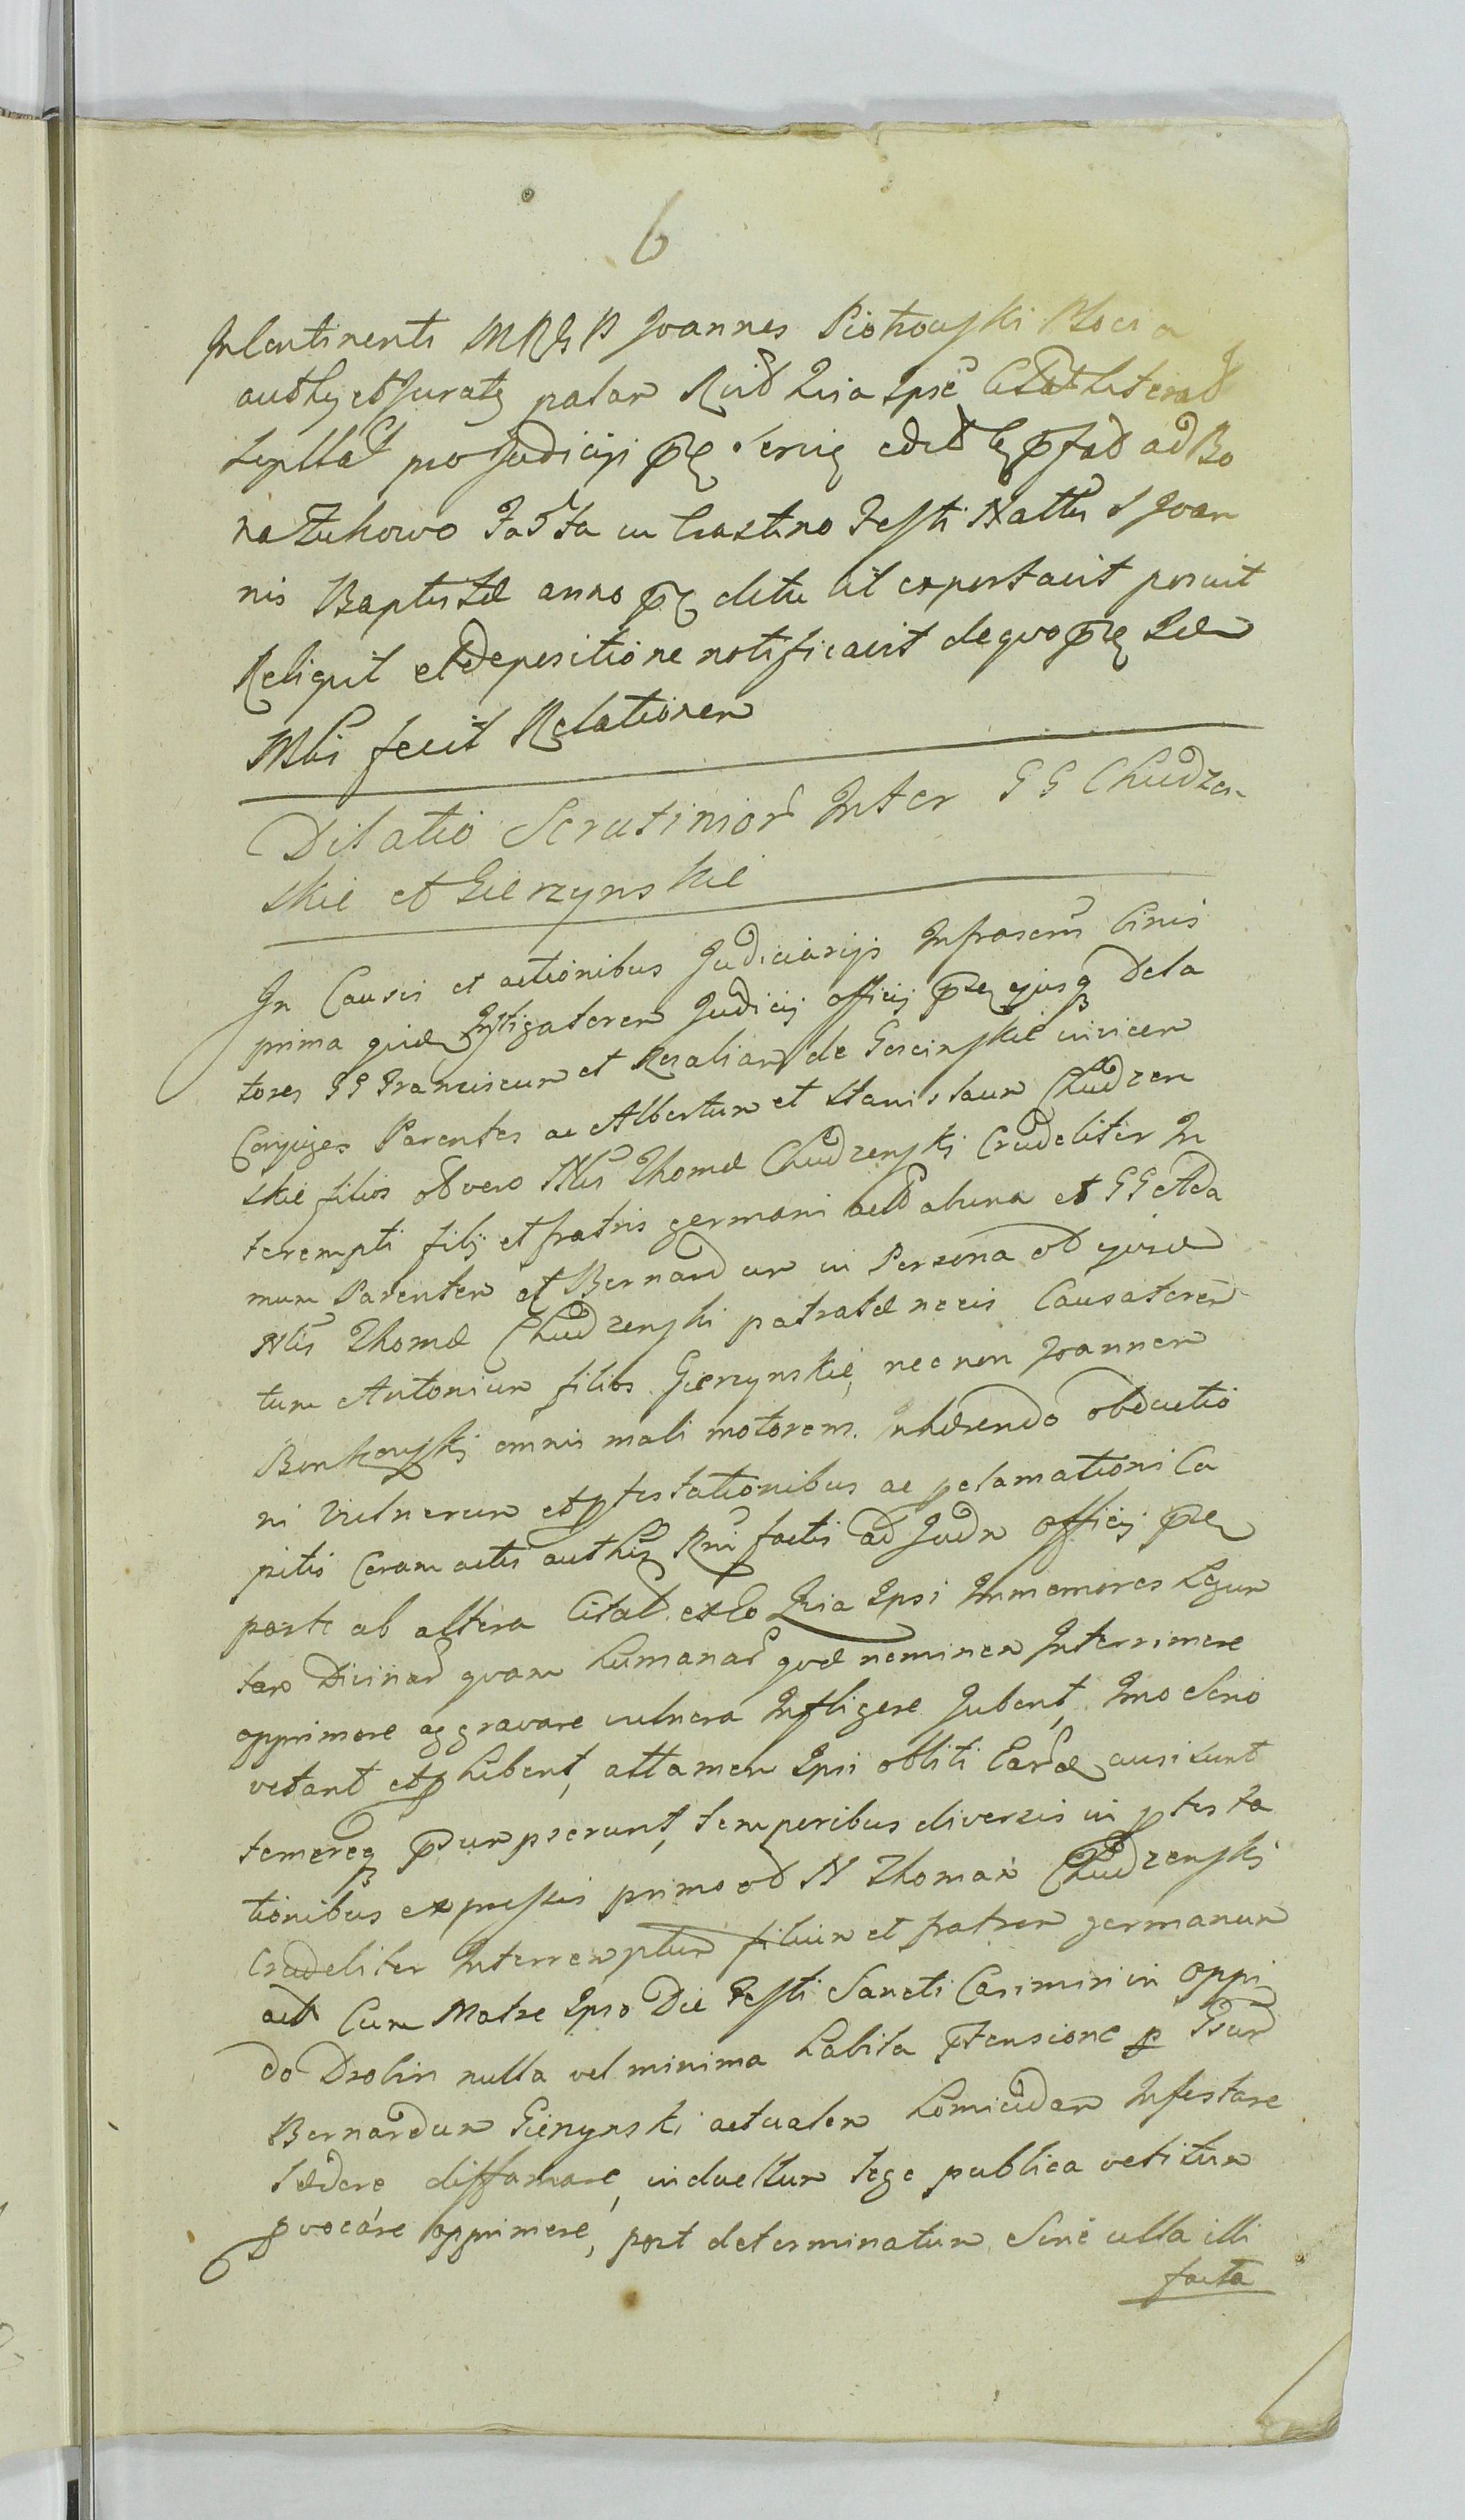 6
In Continenti MRGP Joannes Piotrowski
authq et Juratq palam Rcvit Quia Ipse
pro Judicijs ad Bo
na Zukowo in Crastino Festi Nattis S Joan
nis Baptistæ anno exportavit posuit
Reliquit et de positione notificavit de quo
fecit Relationem
Dilatio Scrutinior Inter GG Chudzen
skie et Gierzynskie
In Causis et actionibus Judiciarijs Infrascris Civis
prima quidem Instigatorem Judicij officij ejusq Dela
tores GG Franciscum et Rosaliam de Goscinskie invicem
Conjuges Parentes ac Albertum et Stanislaum Chudzen
skie filios olim vero Nlis Thomæ Chudzenski Crudeliter In
terempti filij et fratris germani et GG Ada
mum Parentem et Bernardum in Persona ejusdem
Nlis Thomæ Chudzenski patratæ necis Causatorem
tum Antonium filios Gierzynskie, nec non Joannem
Bonkowski omnis mali motorem. Inhærendo obductio
ni vulnerum et ptestationibus ac pclamationi Ca
pitis Coram actis authcis factis ad Judm officij
parte ab altera Citat. ex Eo Quia Ipsi Immemores Legum
tam Divinar quam humanar quæ neminem Interrimere
opprimere aggravare vulnera Infligere Jubent, Imo Serio
vetant et phibent, attamen Ipsi obliti ausi sunt
temereq psumpserunt, temporibus diversis in ptesta
tionibus expressis primo N Thomam Chudzenski
Crudeliter Interremptum filium et fratrem germanum
Cum Matre Ipso Die Festi Sancti Casimiri in Oppi
do Drobin nulla vel minima habita ptensione
Bernardum Gierzynski actualem homicidam Infestare
lædere diffamare, in duellum lege publica vetitum
pvocare opprimere, post determinatum Sine ulla illi
facta